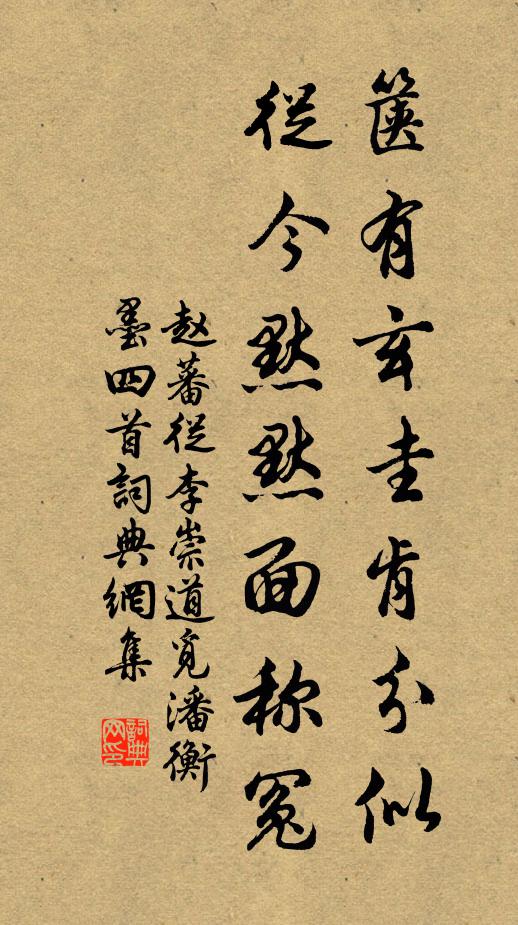 篋有玄圭肯分似
從今默默面称冤
赵蕃從李崇道覓潘衡
墨四首詞典網集
詞典网印